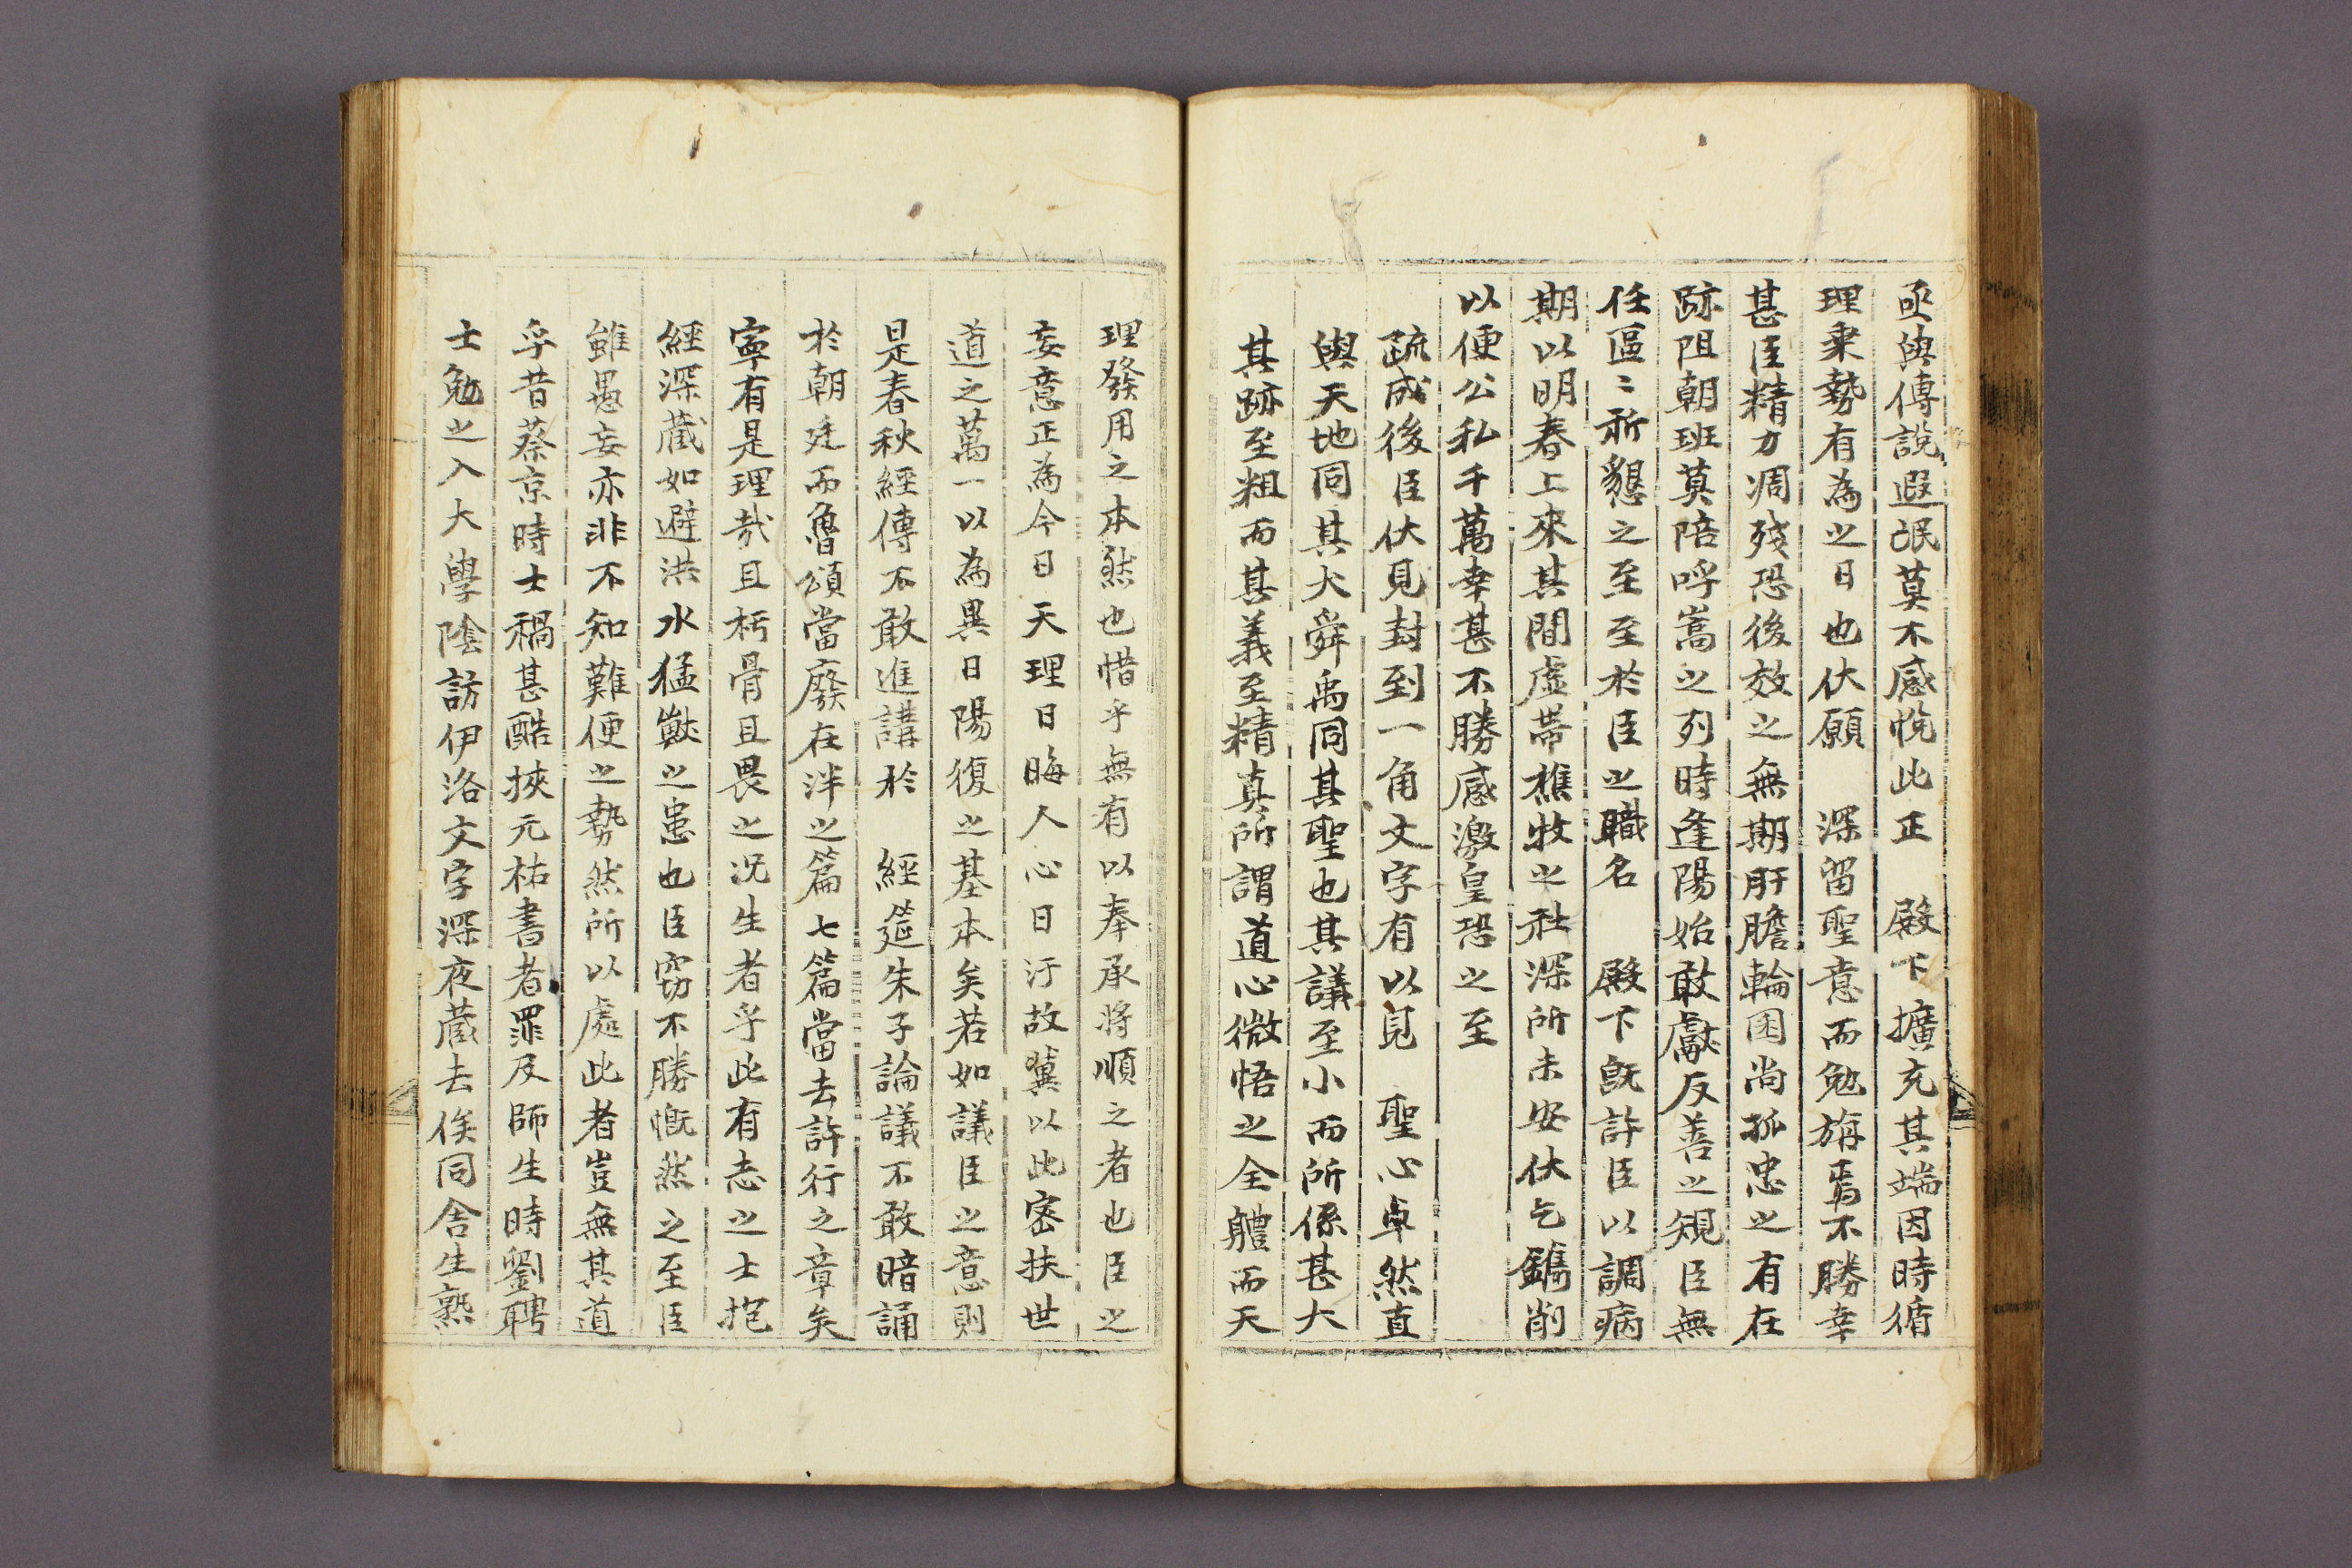 亟與傳說遐氓莫不感悅此正　殿下擴充其端因時循
理乘勢有為之日也伏願　深留聖意而勉旃焉不勝幸
甚臣精力凋殘恐後效之無期肝膽輪囷尚孤忠之有在
跡阻朝班莫陪呼嵩之列時逢陽始敢獻反善之規臣無
任區〻祈懇之至至於臣之職名　殿下旣許臣以調病
期以明春上來其間虛帶樵牧之社深所未安伏乞鐫削
以便公私千萬幸甚不勝感激皇恐之至
疏成後臣伏見封到一角文字有以見　聖心卓然直
與天地同其大舜禹同其聖也其議至小而所係甚大
其跡至粗而其義至精真所謂道心微悟之全軆而天
理發用之本然也惜乎無有以奉承將順之者也臣之
妄意正為今日天理日晦人心日汙故冀以此密扶世
道之萬一以為異日陽復之基本矣若如議臣之意則
是春秋經傳不敢進講於　經筵朱子論議不敢暗誦
於朝廷而魯頌當廢在泮之篇七篇當去許行之章矣
寧有是理哉且朽骨且畏之况生者乎此有志之士抱
經深藏如避洪水猛獸之患也臣竊不勝慨然之至臣
雖愚妄亦非不知難便之勢然所以處此者豈無其道
乎昔蔡京時士禍甚酷挾元祐書者罪及師生時劉聘
士勉之入大學陰訪伊洛文字深夜藏去俟同舍生熟